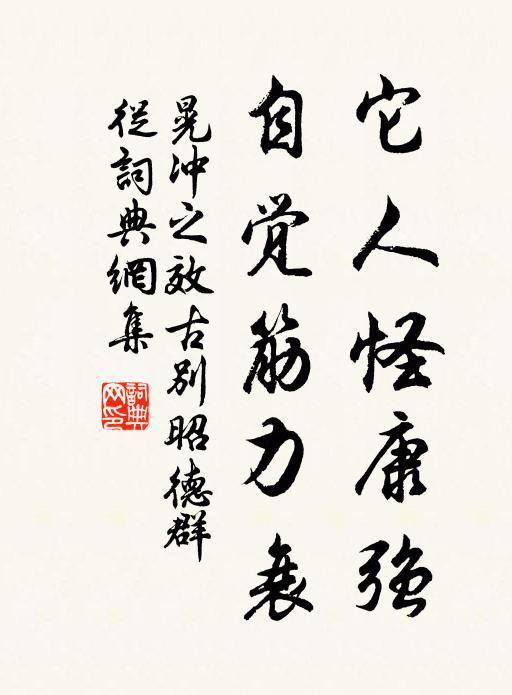 它人怪康强
自觉筋力衰
晃冲之效古别昭德群
从詞典網集
詞典网印